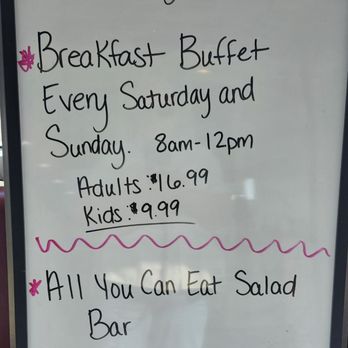 *Breakfast Buffet
Every Saturday and
Sunday. 8am-12pm
Adults: $16.99
Kids: $9.99
*All You Can Eat Salad
Bar